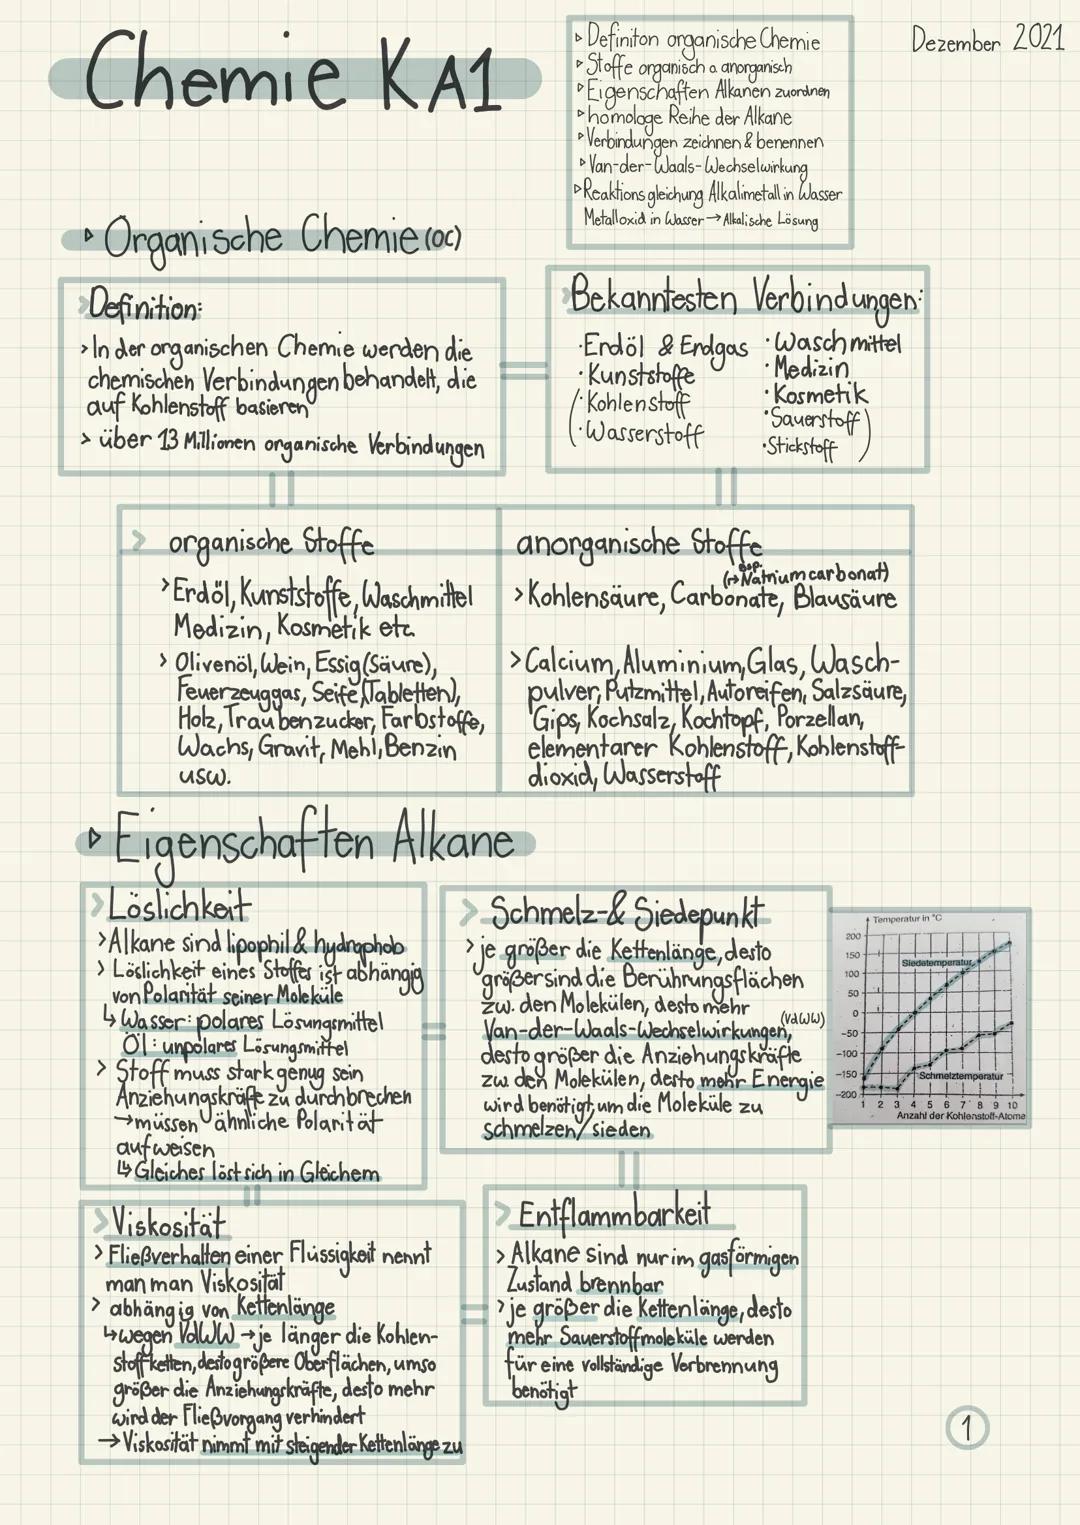 Chemie KA1
Dezember 2021
▹ Definiton organische Chemie
▹ Stoffe organisch o. anorganisch
▹ Eigenschaften Alkanen zuordnen
▹ homologe Reihe der Alkane
▹ Verbindungen zeichnen & benennen
▹ Van-der-Waals-Wechselwirkung
▹ Reaktionsgleichung Alkalimetall in Wasser
Metalloxid in Wasser → Alkalische Lösung
▹ Organische Chemie (OC)
> Definition:
> In der organischen Chemie werden die
chemischen Verbindungen behandelt, die
auf Kohlenstoff basieren
> über 13 Millionen organische Verbindungen
> Bekanntesten Verbindungen:
· Erdöl & Erdgas
· Kunststoffe
(· Kohlenstoff
· Wasserstoff
· Waschmittel
· Medizin
· Kosmetik
· Sauerstoff
· Stickstoff)
> organische Stoffe
> Erdöl, Kunststoffe, Waschmittel
Medizin, Kosmetik etc.
> Olivenöl, Wein, Essig (Säure),
Feuerzeuggas, Seife, (Tabletten),
Holz, Traubenzucker, Farbstoffe,
Wachs, Gravit, Mehl, Benzin
usw.
anorganische Stoffe
Bsp.
(↱ Natriumcarbonat)
> Kohlensäure, Carbonate, Blausäure
> Calcium, Aluminium, Glas, Wasch-
pulver, Putzmittel, Autoreifen, Salzsäure,
Gips, Kochsalz, Kochtopf, Porzellan,
elementarer Kohlenstoff, Kohlenstoff-
dioxid, Wasserstoff
▹ Eigenschaften Alkane
> Löslichkeit
> Alkane sind lipophil & hydrophob
> Löslichkeit eines Stoffes ist abhängig
von Polarität seiner Moleküle
↳ Wasser: polares Lösungsmittel
Öl: unpolares Lösungsmittel
> Stoff muss stark genug sein
Anziehungskräfte zu durchbrechen
→ müssen ähnliche Polarität
aufweisen
↳ Gleiches löst sich in Gleichem
> Schmelz- & Siedepunkt
> je größer die Kettenlänge, desto
größer sind die Berührungsflächen
zw. den Molekülen, desto mehr
(VdWW)
Van-der-Waals-Wechselwirkungen,
desto größer die Anziehungskräfte
zw. den Molekülen, desto mehr Energie
wird benötigt, um die Moleküle zu
schmelzen/sieden
Temperatur in °C
200
150
100
50
0
-50
-100
-150
-200
Siedetemperatur
Schmelztemperatur
1 2 3 4 5 6 7 8 9 10
Anzahl der Kohlenstoff-Atome
> Viskosität
> Fließverhalten einer Flüssigkeit nennt
man man Viskosität
> abhängig von Kettenlänge
↳ wegen VdWW → je länger die Kohlen-
stoffketten, desto größere Oberflächen, umso
größer die Anziehungskräfte, desto mehr
wird der Fließvorgang verhindert
→ Viskosität nimmt mit steigender Kettenlänge zu
> Entflammbarkeit
> Alkane sind nur im gasförmigen
Zustand brennbar
> je größer die Kettenlänge, desto
mehr Sauerstoffmoleküle werden
für eine vollständige Verbrennung
benötigt
1